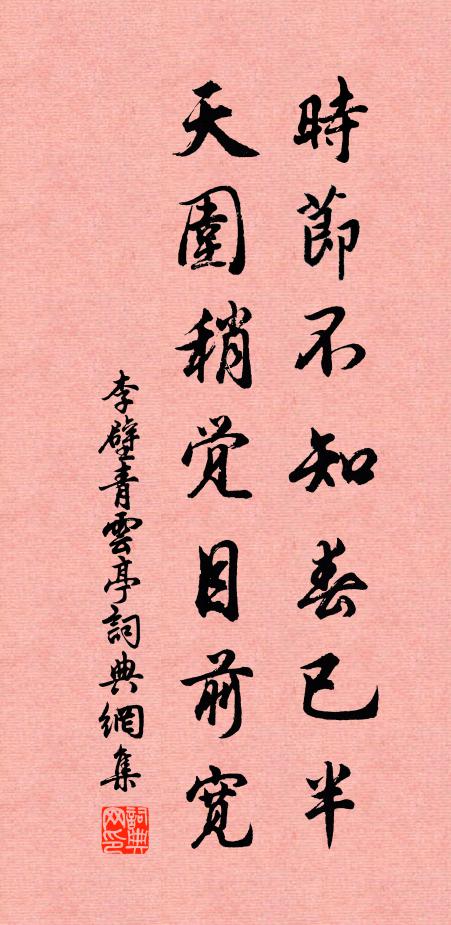 時節不知春已半
天圍稍覺目前寬
李壁青雲亭詞典網集
詞典网印